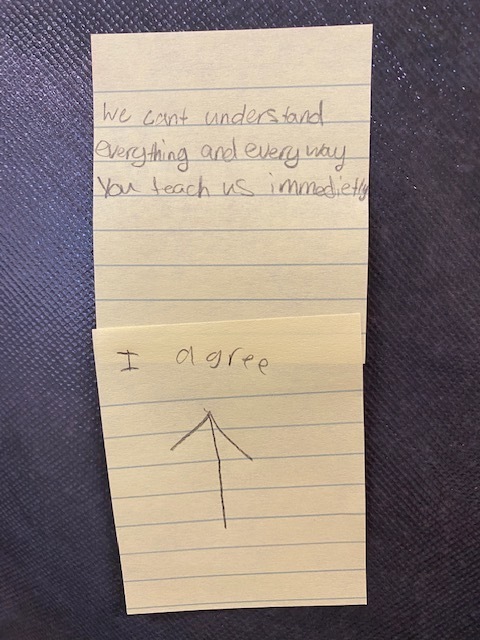 We cant understand
everything and every way
You teach us immedietly
I agree